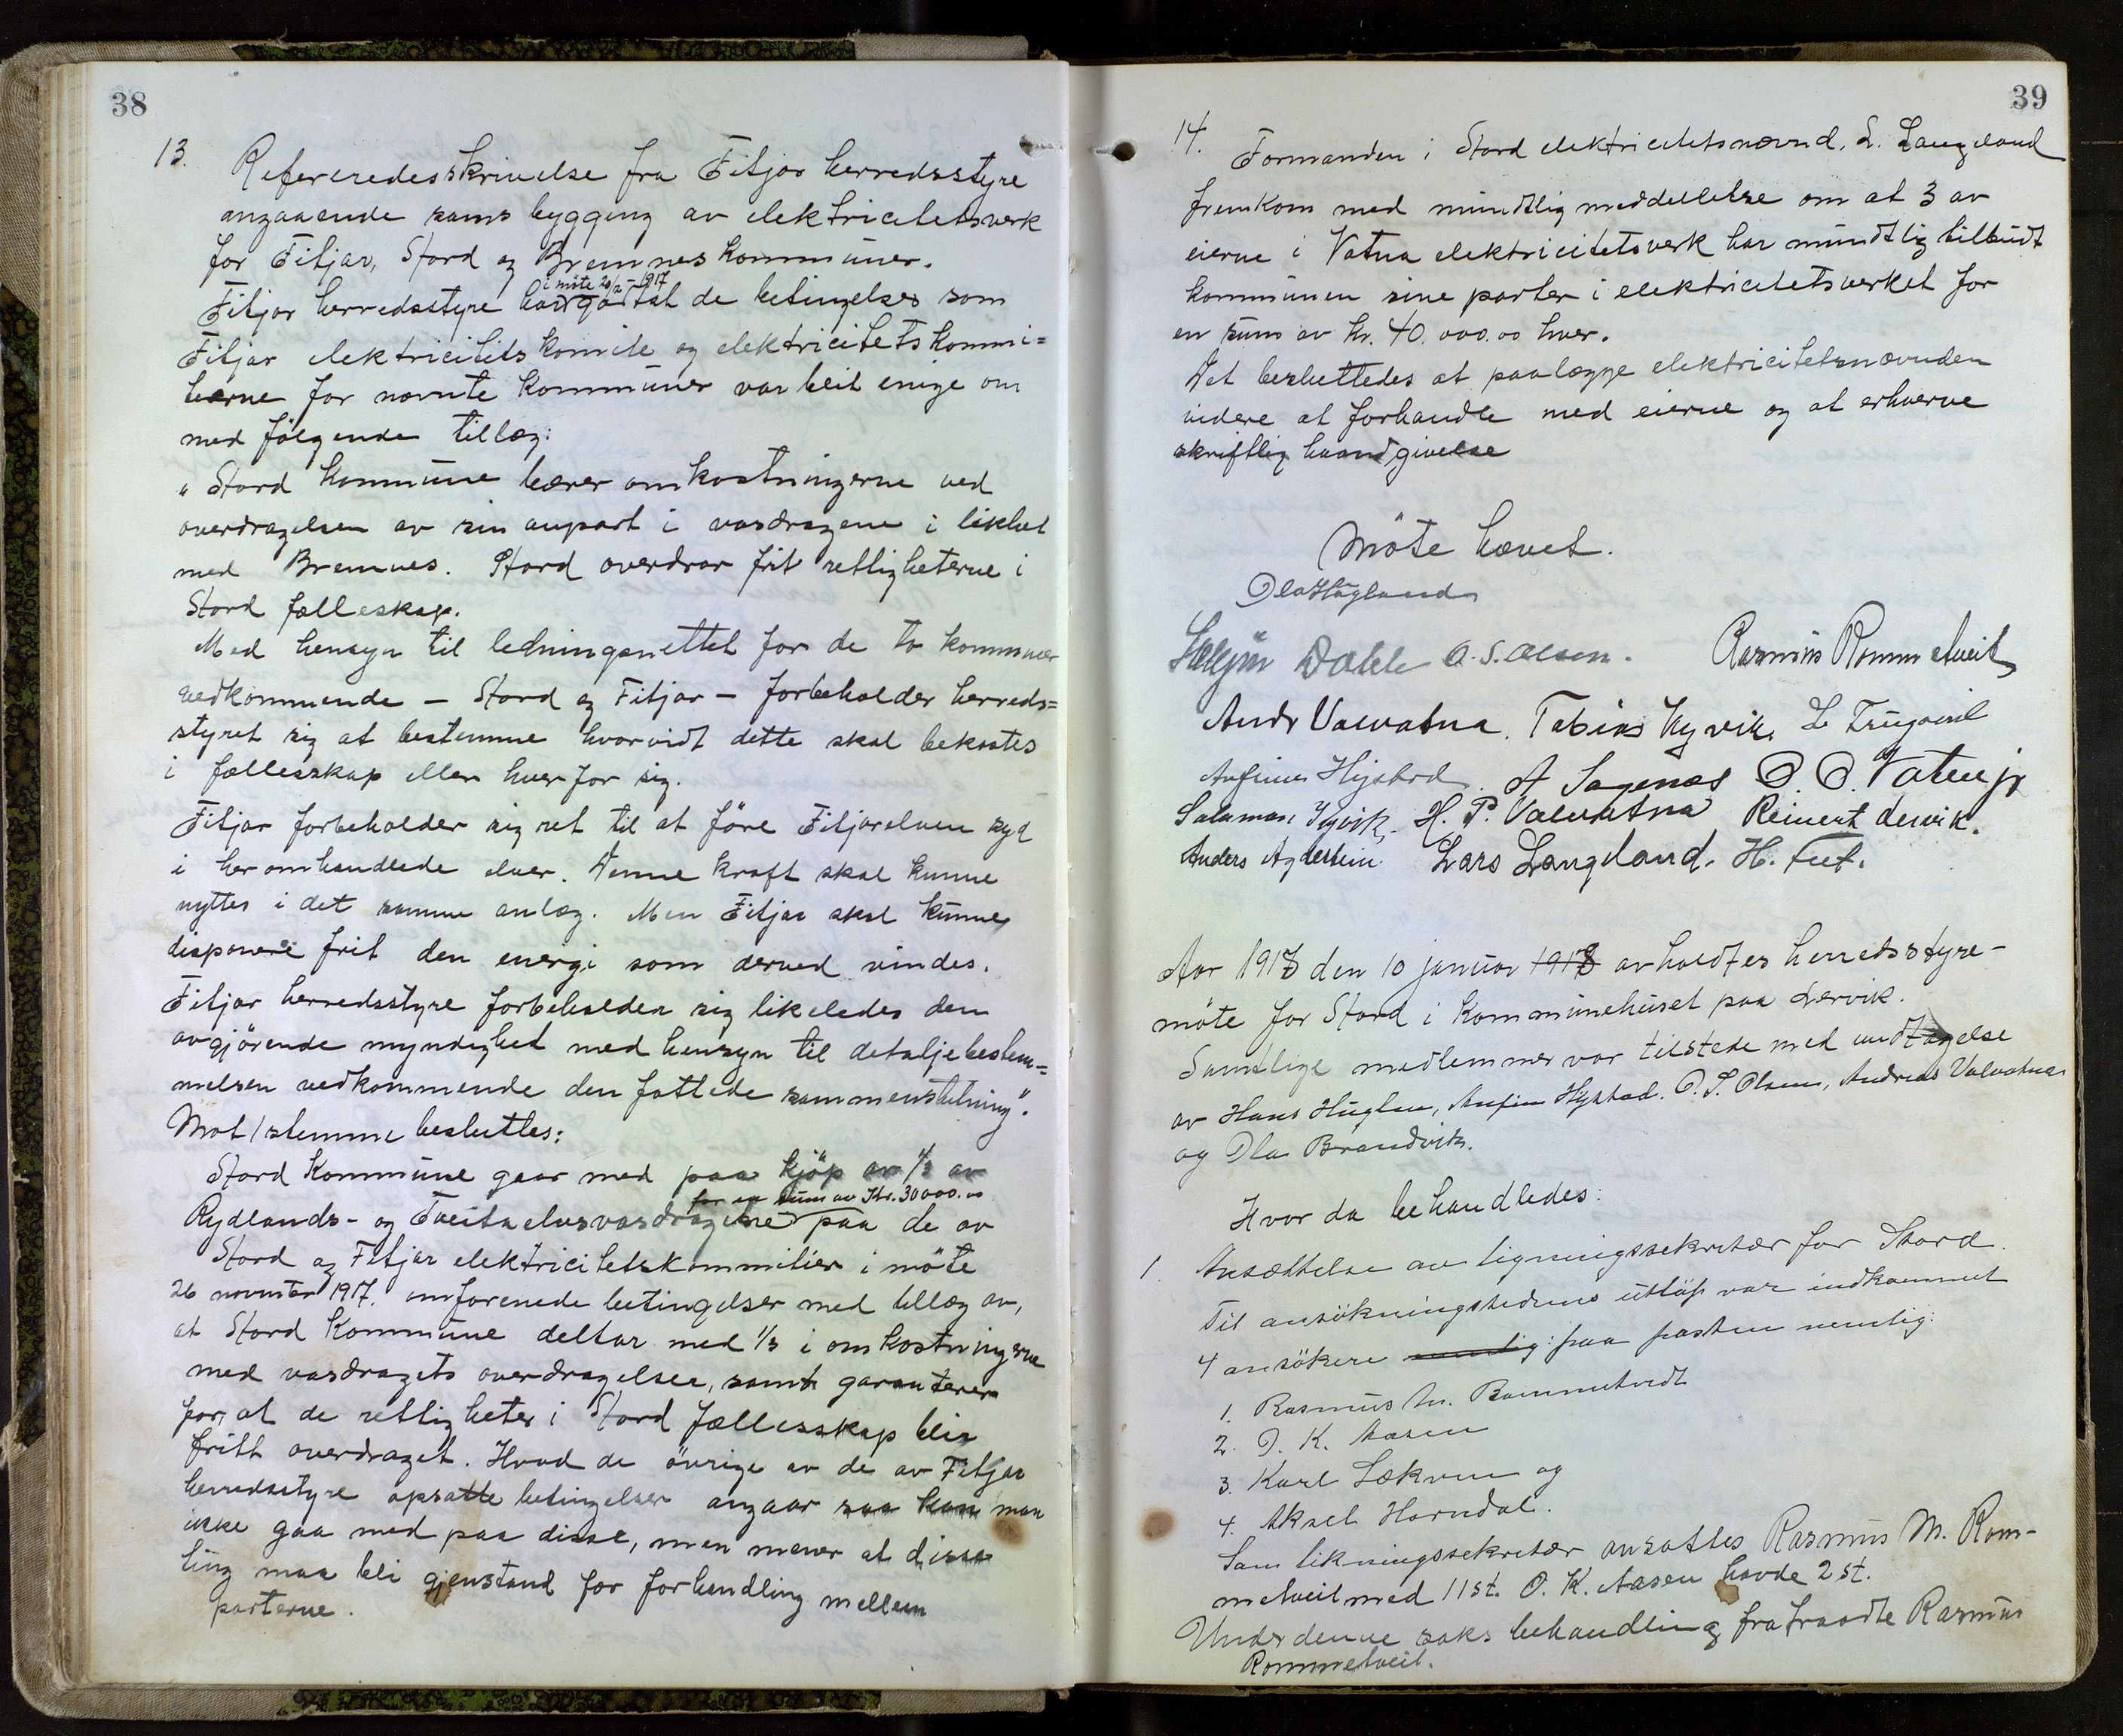 38
13. Refereredes skrivelse fra Fitjar herredsstyre
angaaende sams bygging av elektricitetsverk
for Fitjar, Stord og Bremnes kommuner.
i möte 20/12-1917
Fitjar herredsstyre har godtat de betingelser som
Fitjar elektricitets komite og elektricitetskommi=
teerne for nævnte kommuner var bleit enige om
med følgende tillæg:
"Stord kommune bærer omkostningerne ved
overdragelsen av sin anpart i vasdragene i likhet
med Bremnes. Stord overdrar frit rettigheterne i
Stord fælleskap.
Med hensyn til ledningsnettet for de to kommuner
vedkommende - Stord og Fitjar - forbeholder herreds=
styret sig at bestemme hvorvidt dette skal bekostes
i fællesskap eller hver for sig.
Fitjar forbeholder sig ret til at före Fitjarelven syd
i her omhandlede elver. Denne kraft skal kunne
nyttes i det samme anlæg. Men Fitjar skal kunne
disponere frit den energi som derved vindes.
Fitjar herredsstyre forbeholder sig likeledes den
avgjörende myndighet med hensyn til detaljebestem=
melsen vedkommende den fattede sammenslutning".
Mot 1 stemme besluttes:
Stord kommune gaar med paa kjöp av 1/3 av
for en sum av Kr. 30000.00
Rydlands- og Tveita elvsvasdragene paa de av
Stord og Fitjar elektricitetskommitéer i möte
26 novmber 1917. omforenede betingelser med tillæg av,
at Stord kommune deltar med 1/3 i omkostningerne
med vasdragets overdragelse, samt garanterer
for, at de rettigheter i Stord fællesskap blir
fritt overdraget. Hvad de övrige av de av Fitjar
herredsstyre opsatte betingelser angaar saa kan man
ikke gaa med paa disse, men mener at disse
ting maa bli gjenstand for forhandling mellem
parterne.
39
14. Formanden i Stord elektricitetsnævnd. L. Langeland
fremkom med mundtlig meddelelse om at 3 av
eierne i Vatna elektricitetsverk har mundtlig tilbudt
kommunen sine parter i elektricitetsverket for
en sum av kr. 40.000.00 hver.
Det besluttedes at paalægge elektricitetsnævnden
videre at forhandle med eierne og at erhverve
skriftlig haandgivelse
Möte hævet.
Ola Høgland
Salgjin Dahle O. S. Olsen. Rasmus Rommetveit
Andr Valvatna. Tobias Kyvik,
Anfinn Hystad A Sagenæs O. O. Vatne jr
Salamon Kyvik, H. P. Valvatna Reinert Lervik.
Anders Agdestein. Lars Langeland. H. Tveit.
Aar 1918 den 10 januar 1918 avholdtes herredsstyre-
möte for Stord i kommunehuset paa Lervik.
Samtlige medlemmer var tilstede med undtagelse
av Hans Huglen, Anfin Hystad. O. S. Olsen, Andreas Valvatna
og Ola Brandvik.
Hvor da behandledes:
1. Ansættelse av ligningssekretær for Stord.
Til ansökningstidens utlöp var indkommet
4 ansökere nemlig: paa posten nemlig:
1. Rasmus M. Rommetvedt
2. O. K. Aasen
3. Karl Lekven og
4. Aksel Horndal.
Som likningssekretær ansattes Rasmus M. Rom-
metveit med 11 st. O. K. Aasen havde 2 st.
Under denne saks behandling frafraadte Rasmus
Rommetveit.